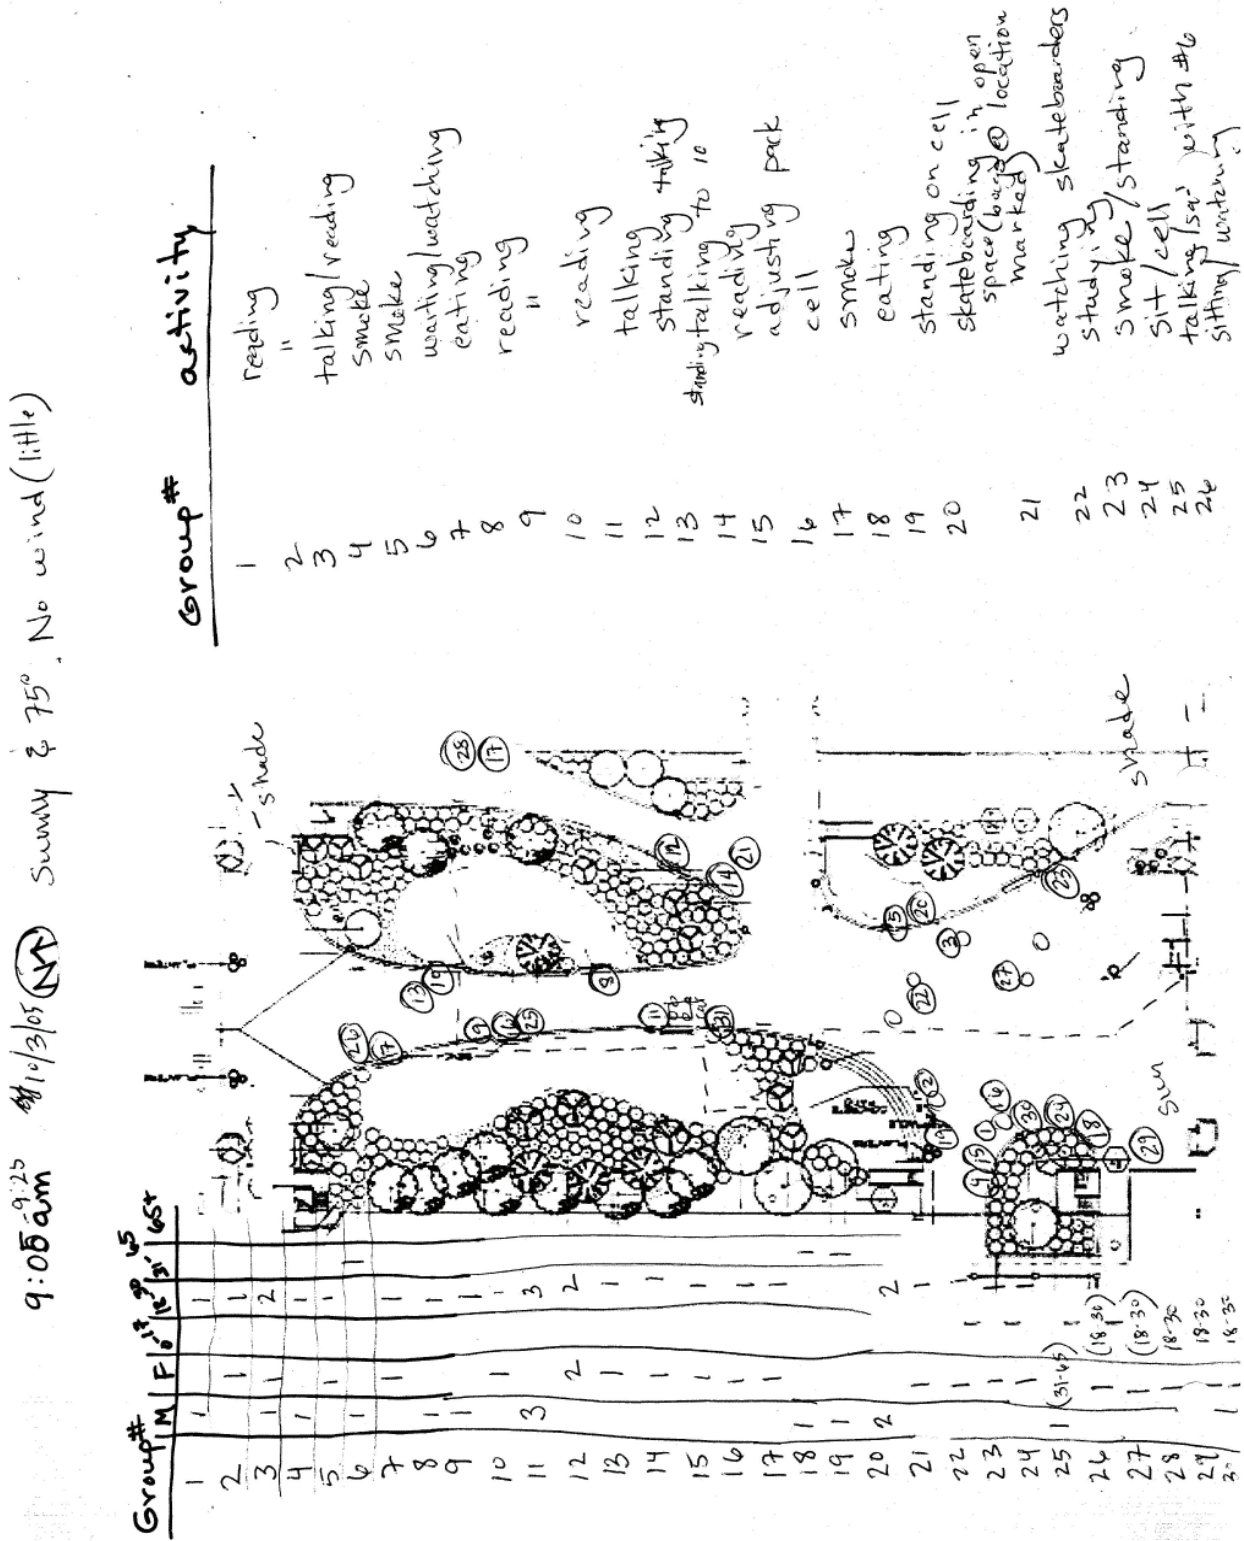 9:05-9:25 am 10/3/05 N Sunny & 75°. No wind (little)
Group # M F 0-17 18-30 31-65 65+
1 1 1
2 1 1
3 1 1 2
4 1 1
5 1 1
6 1 1
7 1 1
8 1 1
9 1 1
10 1 1
11 3 3
12 2 2
13 1 1
14 1 1
15 1 1
16 1 1
17 1 1
18 1 1
19 1 1
20 2 2
21 1 1
22 1 1
23 1 1
24 1 1
25 1 (31-65) 1
26 1 (18-30) 1
27 1 (18-30)
28 1 18-30
29 1 18-30
30 1 1 18-30
shade
28
17
12
14
21
13
10
8
26
7
9
16
25
11
31
15
20
3
22
27
23
shade
2
19
4
5
1
6
30
24
18
29
sun
Group # activity
1 reading
2 "
3 talking/reading
4 smoke
5 smoke
6 waiting/watching
7 eating
8 reading
9 "
10 reading
11 talking
12 standing talking
13 standing talking to 10
14 reading
15 adjusting pack
16 cell
17 smoke
18 eating
19 standing on cell
20 skateboarding in open
space (bag @ location
marked)
21 watching skateboarders
22 studying
23 smoke/standing
24 sit/cell
25 talking with #6
26 sitting/watching